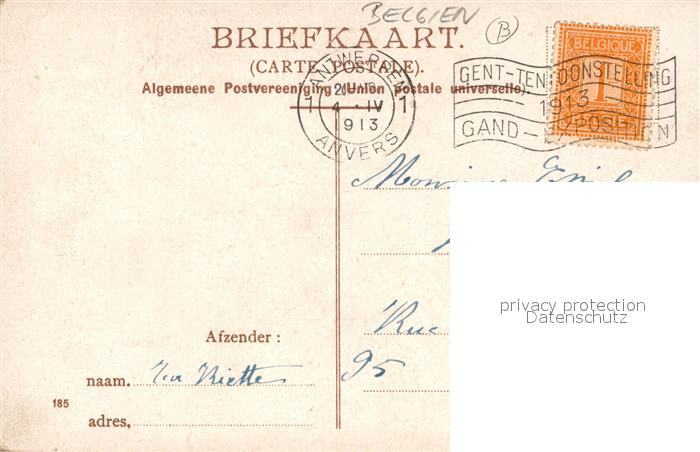 BELGIEN
B
BRIEFKAART.
(CARTE POSTALE).
Algemeene Postvereeniging (Union postale universelle).
ANTWERPEN
1 4 IV 1
1913
ANVERS
BELGIQUE
1
GENT-TENTOONSTELLING
1913
GAND-EXPOSITION
Rue
95
privacy protection
Datenschutz
Afzender :
naam.
185
adres,